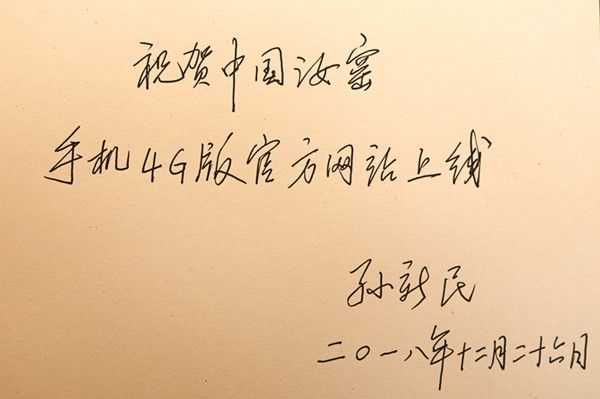 祝贺中国汝窑
手机4G版官方网站上线
孙新民
二〇一八年十二月二十六日